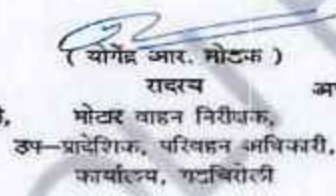 ( योगेंद्र आर. मोडक )
सदस्य
मोटार वाहन निरीक्षक,
उप-प्रादेशिक, परिवहन अधिकारी,
कार्यालय, गडचिरोली